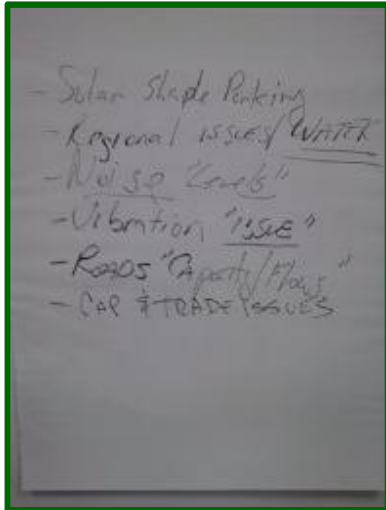 - Solar Shade Parking
- Regional issues/ WATER
- Noise "Levels"
- Vibration "ISSUE"
- ROADS "Capacity/Flows"
- CAP & TRADE ISSUES